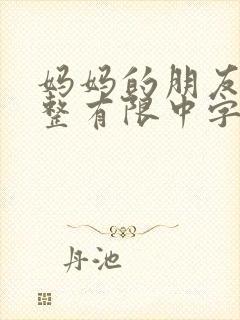 妈妈的朋友
整有限中字
丹池